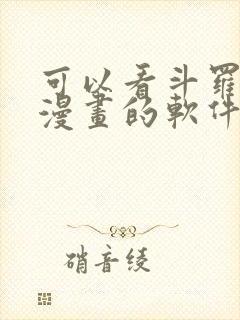 可以看斗羅
漫畫的軟件
硝音绫